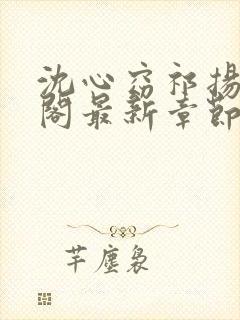 沈心窈祁揚
閣最新章節
芊塵裊